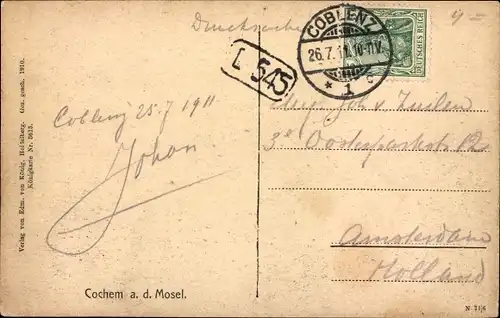 Drucksache
4 =
COBLENZ
26.7.11.10-11V.
* 1 c
DEUTSCHES REICH
L 545
Coblenz 25.7 1911
Johan
Mejr. J. v. Zuilen
3e Oosterparkstr.
Amsterdam
Holland
Cochem a. d. Mosel.
Verlag von Edm. von König, Heidelberg. Ges. gesch. 1910.
Königkarte Nr.
N 11/6